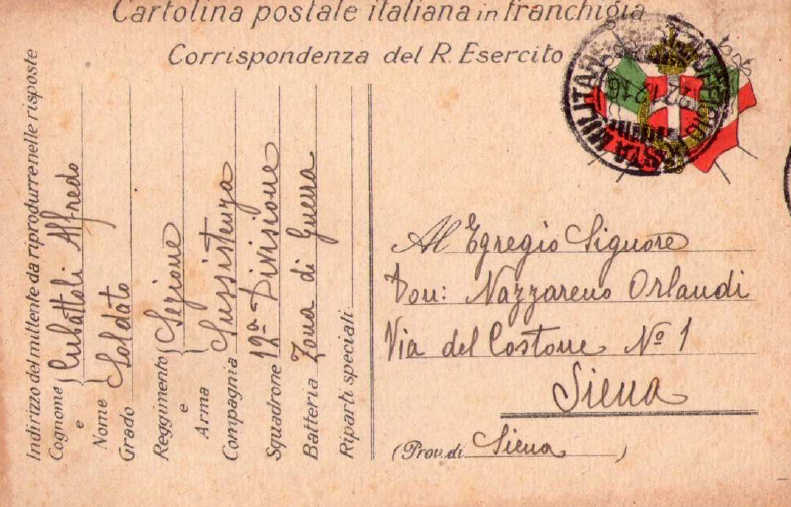 Cartolina postale italiana in franchigia
Corrispondenza del R. Esercito
Indirizzo del mittente da riprodurre nelle risposte
Cognome e Nome Cubattoli Alfredo
Grado Soldato
Reggimento e Arma Sezione
Compagnia Sussistenza
Squadrone 12ª Divisione
Batteria Zona di Guerra
Riparti speciali:
POSTA MILITARE
Al Egregio Signore
Don: Nazzareno Orlandi
Via del Costone Nº 1
Siena
(Prov. di Siena)